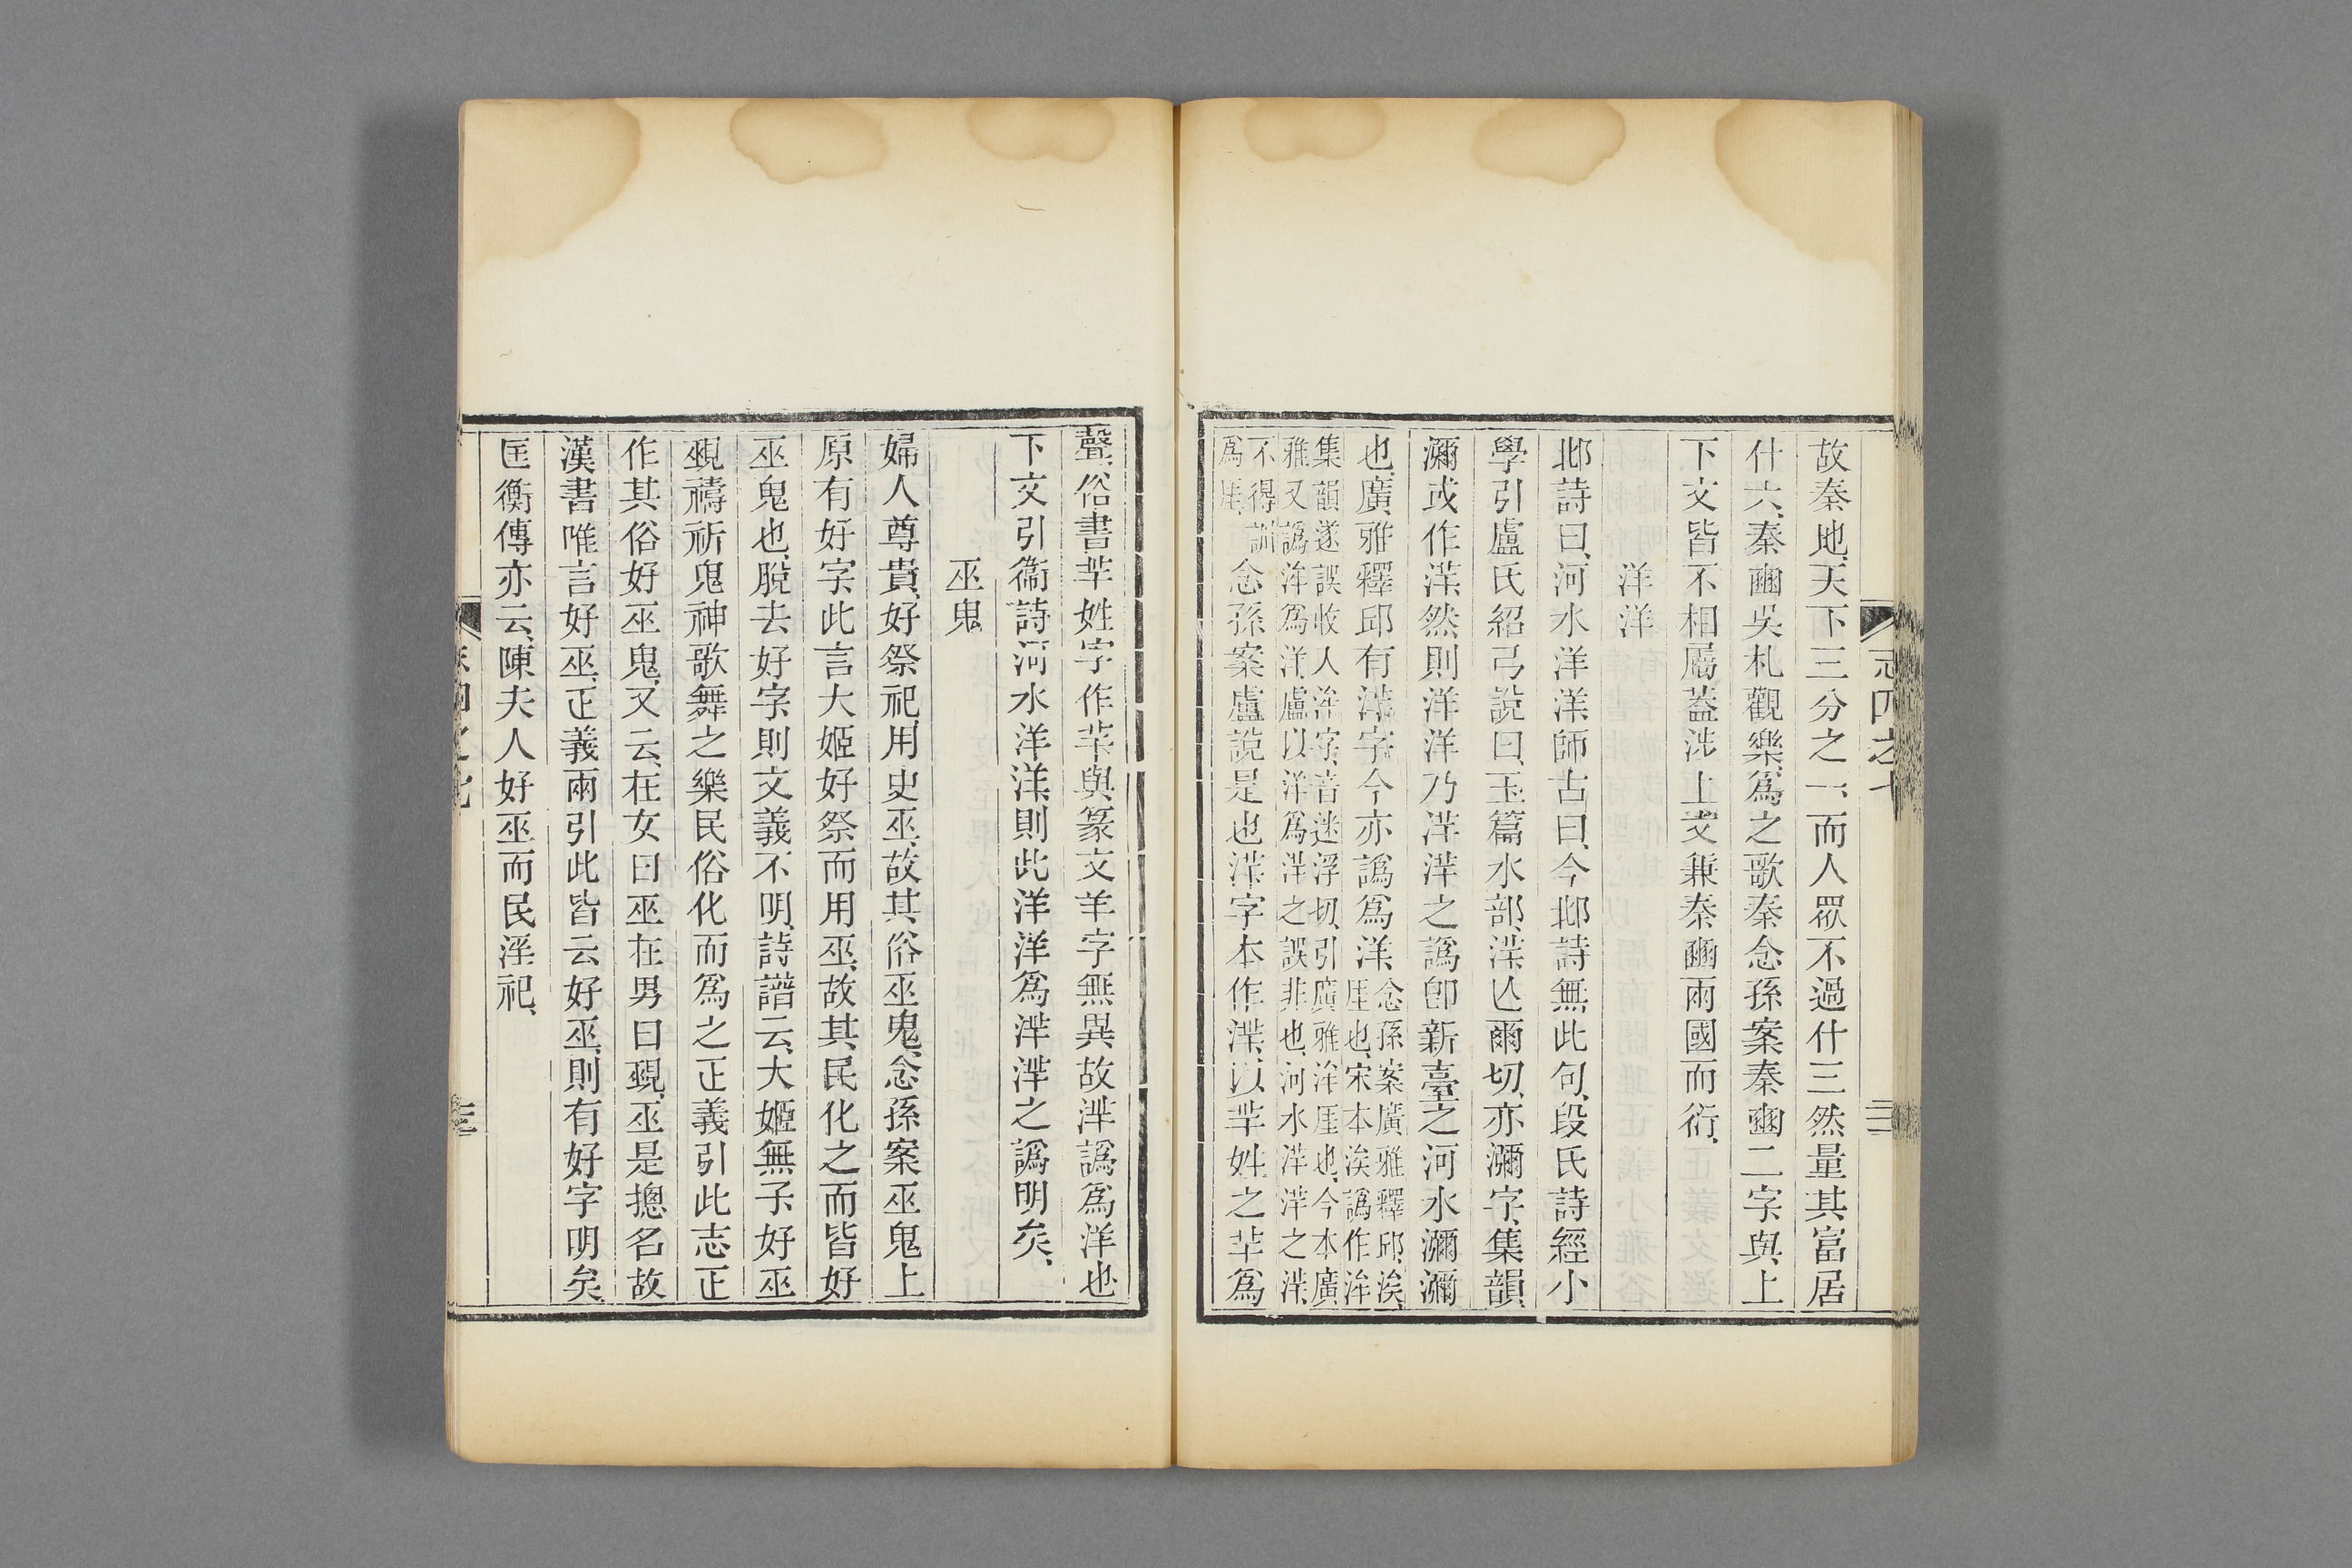 故秦地、天下三分之一、而人眾不過什三、然量其富居
什六、秦豳吳札觀樂、爲之歌秦、念孫案秦豳二字、與上
下文皆不相屬、葢涉上文兼秦豳兩國而衍、
洋洋
邶詩曰、河水洋洋、師古曰、今邶詩無此句、段氏詩經小
學引盧氏紹弓說曰、玉篇水部、洋亾爾切、亦瀰字、集韻、
瀰或作洋、然則洋洋乃洋洋之譌、卽新臺之河水瀰瀰
也、廣雅釋邱有洋字、今亦譌爲洋、念孫案廣雅釋邱、涘、
厓也、宋本涘譌作洠
集韻遂誤收入洠字、音迷浮切、引廣雅洠厓也、今本廣
雅又譌洠爲洋、盧以洋爲洋之誤、非也、河水洋洋之洋、
不得訓
爲厓、念孫案盧說是也、洋字本作洋、以芈姓之芈爲
聲、俗書芈姓字作芈、與篆文羊字無異、故洋譌爲洋也、
下文引衞詩河水洋洋、則此洋洋爲洋洋之譌明矣、
巫鬼
婦人尊貴、好祭祀、用史巫、故其俗巫鬼、念孫案巫鬼上
原有好字、此言大姬好祭而用巫、故其民化之而皆好
巫鬼也、脫去好字、則文義不明、詩譜云、大姬無子、好巫
覡禱祈鬼神歌舞之樂、民俗化而爲之、正義引此志正
作其俗好巫鬼、又云、在女曰巫、在男曰覡、巫是摠名、故
漢書唯言好巫、正義兩引此皆云好巫、則有好字明矣、
匡衡傳亦云、陳夫人好巫而民淫祀、